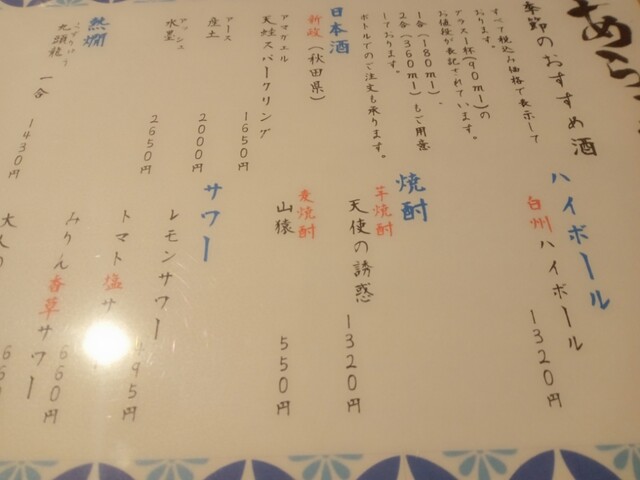 季節のおすすめ酒
すべて税込み価格で表示して
おります。
グラス1杯(90ml)の
お値段が表記されています。
1合(180ml)、
2合(360ml)もご用意
しております。
ボトルでのご注文も承ります。
日本酒
新政(秋田県)
アマガエル
天蛙スパークリング
1650円
アース
産土
2000円
アッシュ
水墨
2650円
熱燗
くずりゅう
九頭龍 一合
1430円
ハイボール
白州ハイボール
1320円
焼酎
芋焼酎
天使の誘惑
1320円
麦焼酎
山猿
550円
サワー
レモンサワー
トマト塩サ
495円
みりん香草サワー
660円
大人の